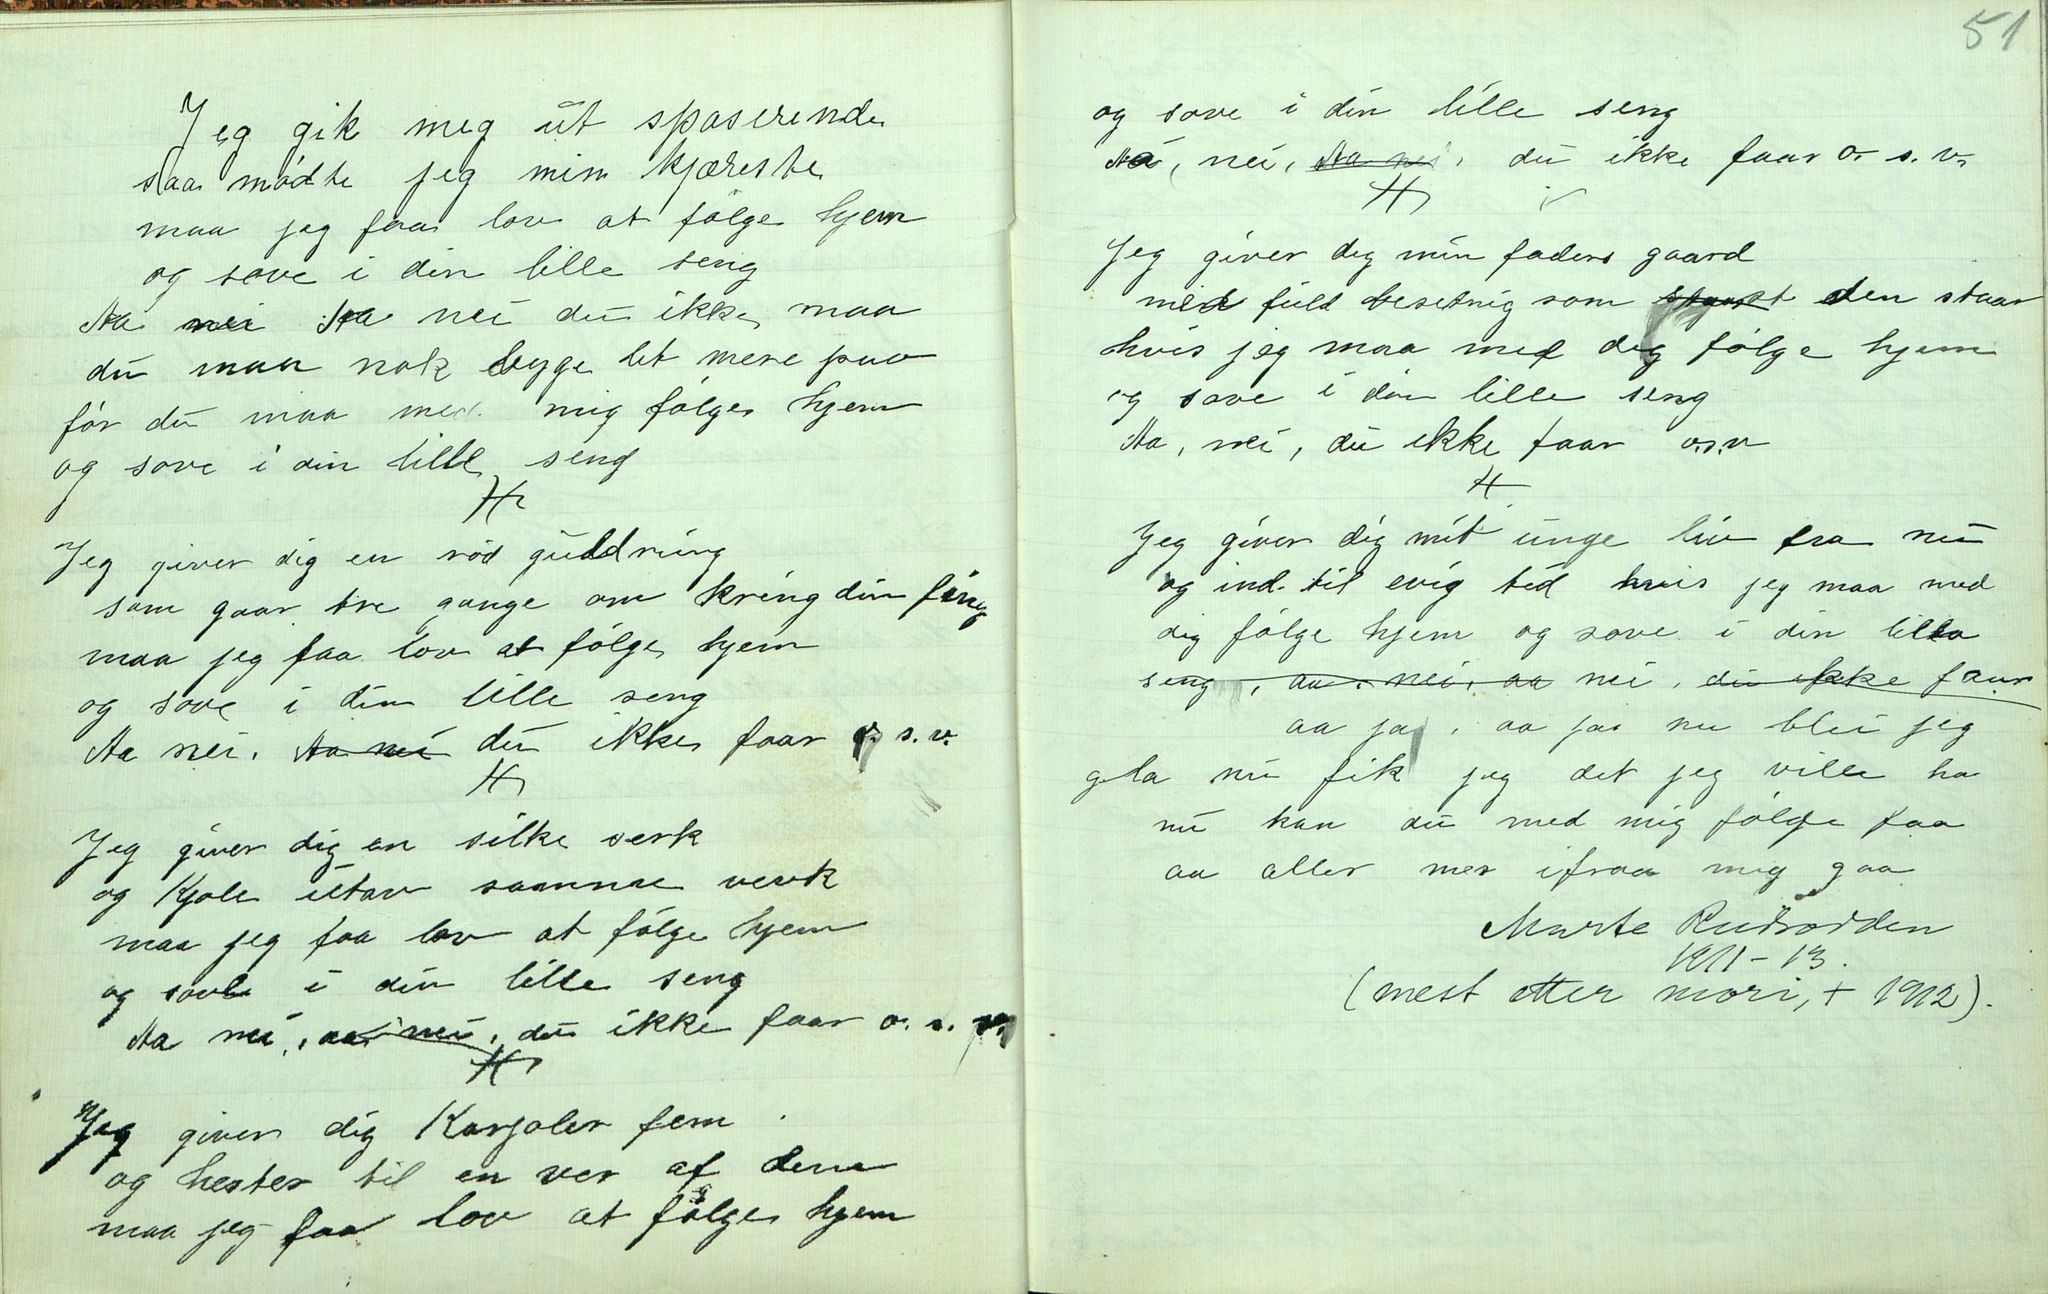 Jeg gik meg ut spaserende
saa mødte jeg min kjæreste
maa jeg faa lov at følge hjem
og sove i din lille seng
Aa nei Aa nei du ikke maa
du maa nok byge let mere paa
før du maa med mig følge hjem
og sove i din lille seng
Jeg giver dig en rød guldring
som gaar tre gange om kring din fing
maa jeg faa lov at følge hjem
og sove i din lille seng
Aa nei, Aa nei du ikke faar o. s. v.
Jeg giver dig en silke serk
og Kjole utav samme verk
maa jeg faa lov at følge hjem
og sove i din lille seng
Aa nei, aa nei, du ikke faar o. s. v.
Jeg giver dig Karjoler fem
og hester til en ver af dem
maa jeg faa lov at følge hjem
51
og sove i din lille seng
Aa, nei, Aa nei, du ikke faar o. s. v.
Jeg giver dig min faders gaard
med fuld besetnig som den staar
hvis jeg maa med dig følge hjem
og sove i din lille seng
Aa, nei, du ikke faar o.s.v
Jeg giver dig mit unge liv fra nu
og ind til evig tid hvis jeg maa med
dig følge hjem og sove i din lille
seng, aa, nei, aa nei, du ikke faar
aa ja, aa ja nu blei jeg
gla nu fik jeg det jeg ville ha
nu kan du med mig følge faa
aa aller mer ifraa mig gaa
Marte
1911-13.
(mest etter mori, + 1912).